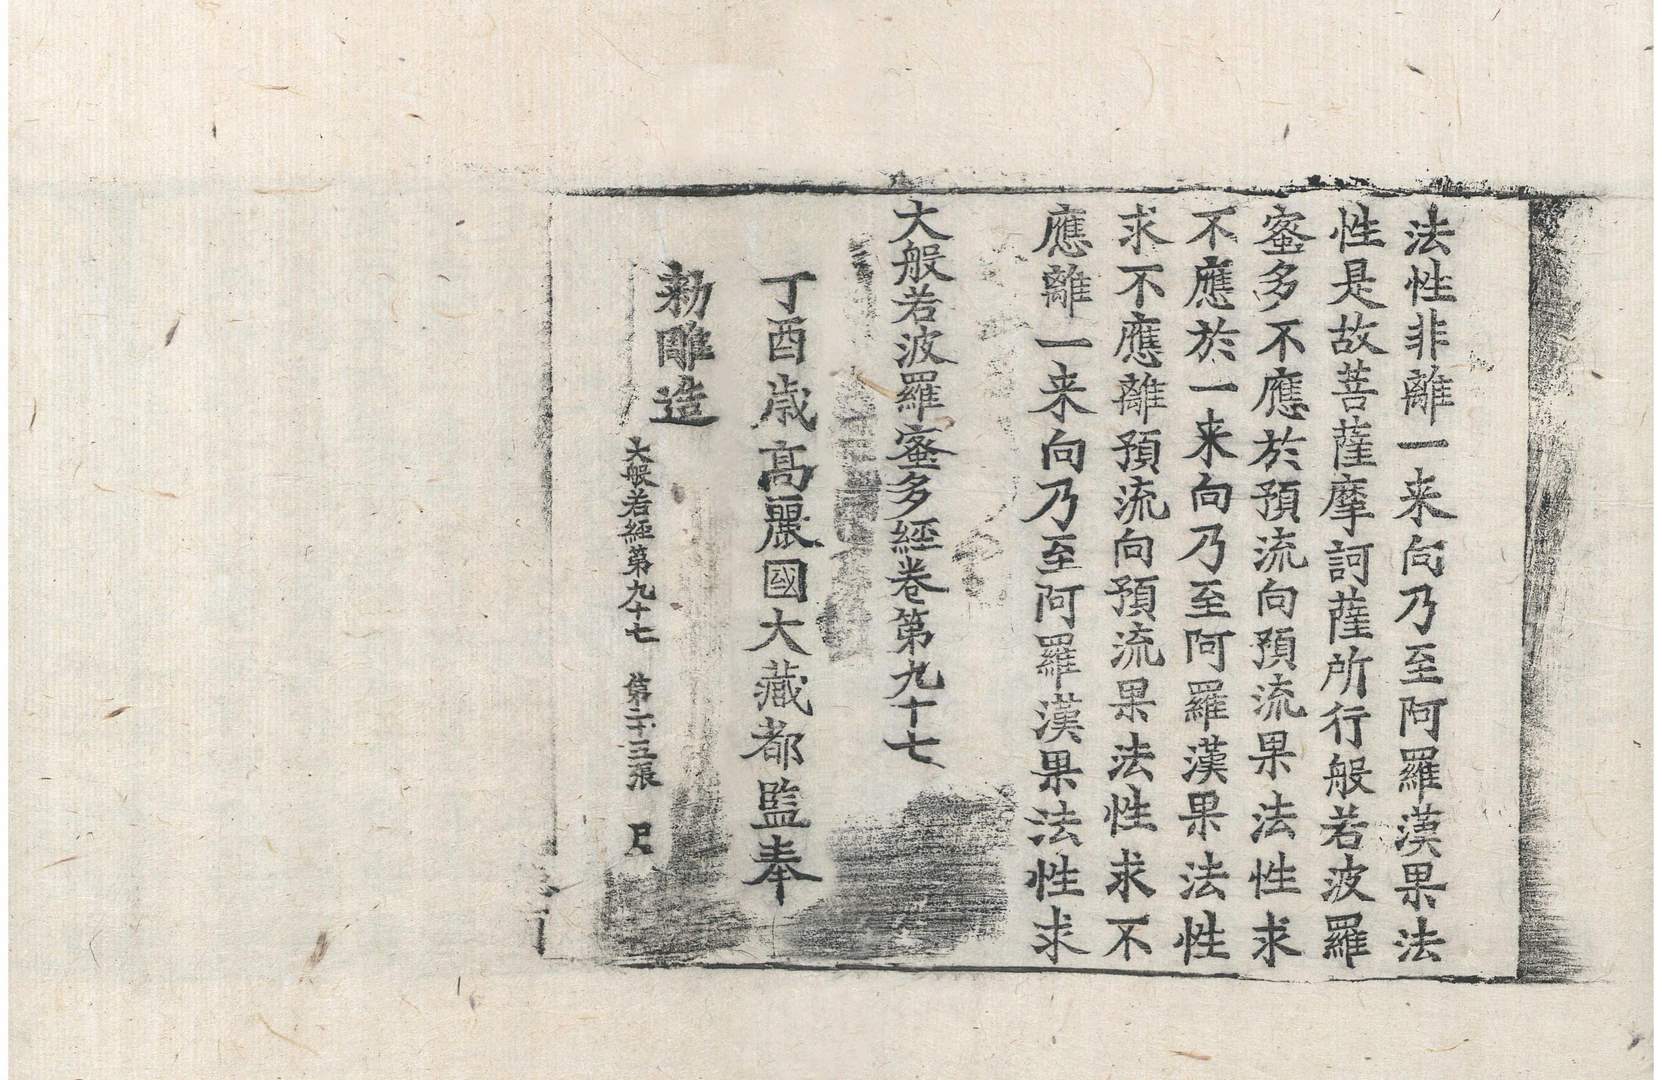 法性非離一来向乃至阿羅漢果法
性是故菩薩摩訶薩所行般若波羅
蜜多不應於預流向預流果法性求
不應於一来向乃至阿羅漢果法性
求不應離預流向預流果法性求不
應離一来向乃至阿羅漢果法性求
大般若波羅蜜多經卷第九十七
丁酉歲高麗國大藏都監奉
勑雕造
大般若經第九十七 第二十三張